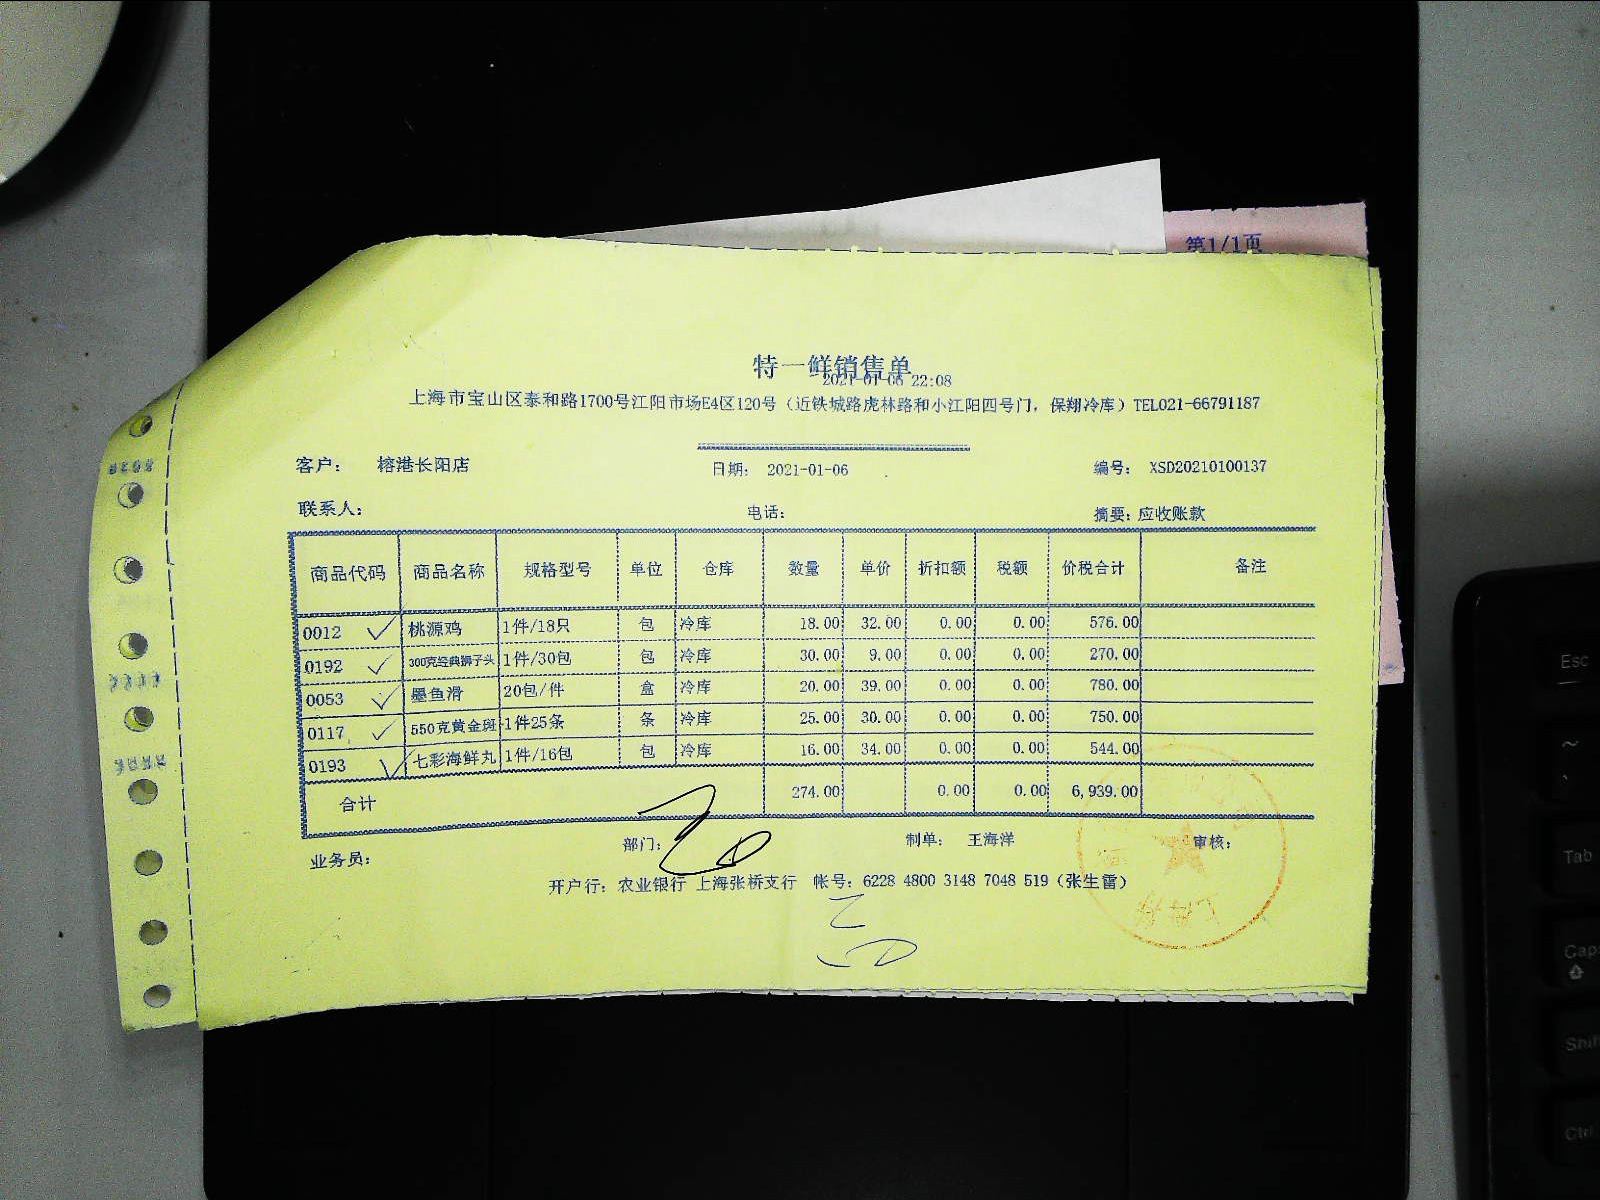 第1/1页
特一鲜销售单
2021-01-06 22:08
上海市宝山区泰和路1700号江阳市场E4区120号（近铁城路虎林路和小江阳四号门，保翔冷库）TEL021-66791187
客户： 榕港长阳店 日期： 2021-01-06 编号： XSD20210100137
联系人： 电话： 摘要：应收账款
商品代码 商品名称 规格型号 单位 仓库 数量 单价 折扣额 税额 价税合计 备注
0012 桃源鸡 1件/18只 包 冷库 18.00 32.00 0.00 0.00 576.00
0192 300克经典狮子头 1件/30包 包 冷库 30.00 9.00 0.00 0.00 270.00
0053 墨鱼滑 20包/件 盒 冷库 20.00 39.00 0.00 0.00 780.00
0117 550克黄金斑 1件25条 条 冷库 25.00 30.00 0.00 0.00 750.00
0193 七彩海鲜丸 1件/16包 包 冷库 16.00 34.00 0.00 0.00 544.00
合计 274.00 0.00 0.00 6,939.00
业务员： 部门： 制单： 王海洋 审核：
开户行：农业银行 上海张桥支行 帐号：6228 4800 3148 7048 519（张生雷）
Esc
~
Tab
Caps
Shift
Ctrl